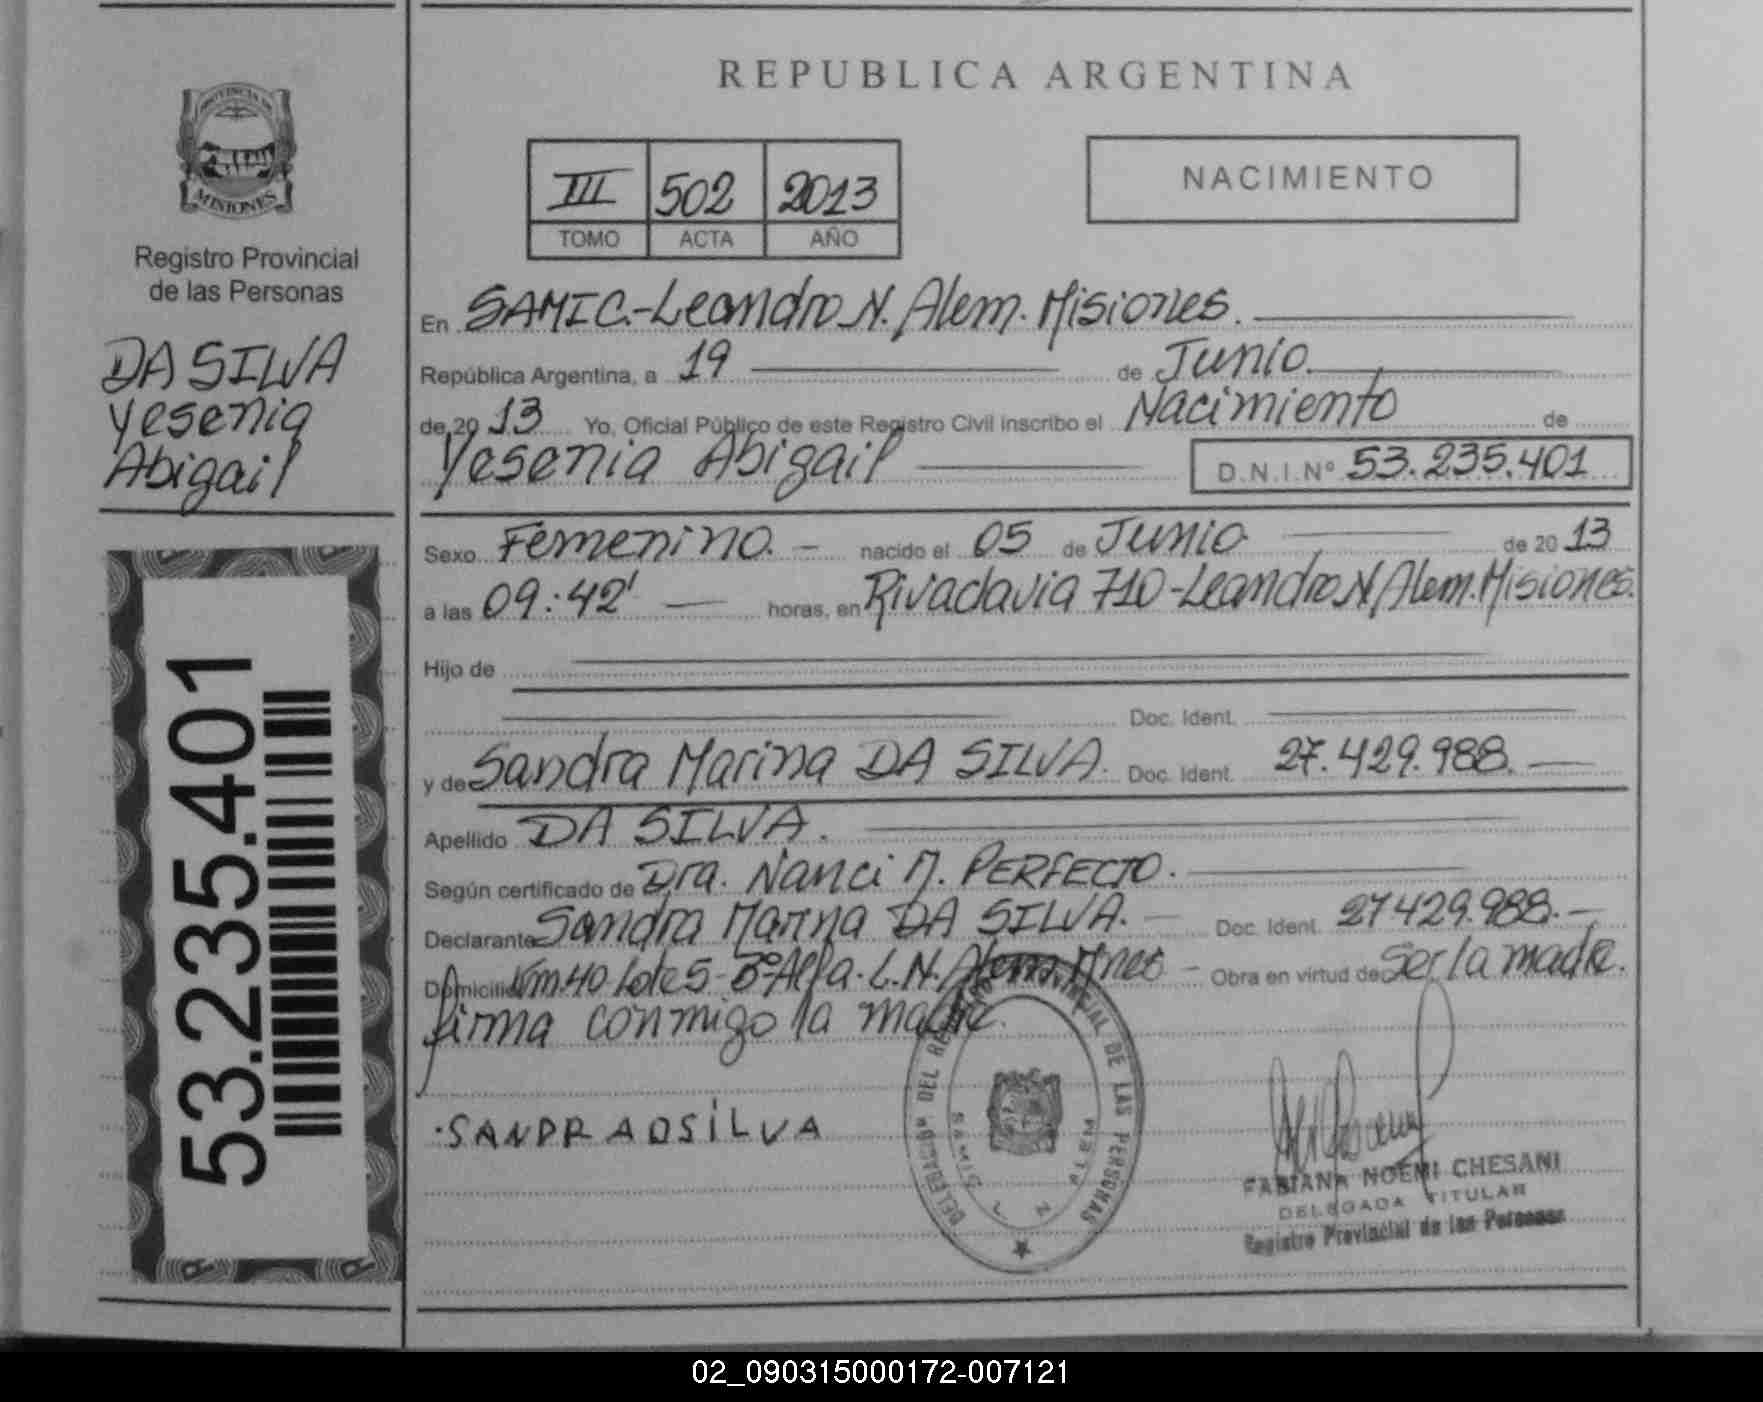 REPUBLICA ARGENTINA
PROVINCIA DE
MISIONES
Registro Provincial
de las Personas
DA SILVA
Yesenia
Abigail
53.235.401
III 502 2013
TOMO ACTA AÑO
NACIMIENTO
En SAMIC.-Leandro N. Alem. Misiones.
República Argentina, a 19 de Junio.
de 20 13 Yo, Oficial Público de este Registro Civil inscribo el Nacimiento de
Yesenia Abigail D.N.I.Nº 53.235.401
Sexo Femenino. - nacido el 05 de Junio de 20 13
a las 09:42' horas, en Rivadavia 710-Leandro N Alem.Misiones.
Hijo de
Doc. Ident.
y de Sandra Marina DA SILVA. Doc. Ident. 27.429.988.
Apellido DA SILVA.
Según certificado de Dra. Nanci M. PERFECTO.
Declarante Sandra Marina DA SILVA. Doc. Ident. 27429.988.-
Domicilio Km.40 Lote 5- 3º Alfa. L.N. Alem. Mnes - Obra en virtud de Ser la madre.
firma conmigo la madre.
.SANDRADSİLVA
DELEGACION DEL REGISTRO PROVINCIAL DE LAS PERSONAS
SAMIC L N ALEM
FABIANA NOEMI CHESANI
DELEGADA TITULAR
Registro Provincial de las Personas
02_090315000172-007121